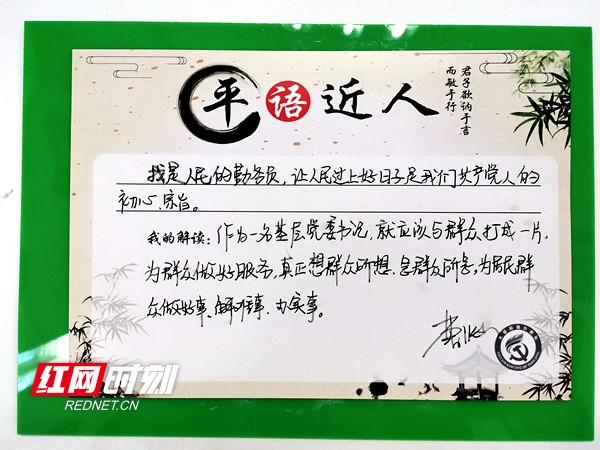 平语近人
君子欲讷于言
而敏于行
我是人民的勤务员，让人民过上好日子是我们共产党人的
初心、宗旨。
我的解读：作为一名基层党委书记，就应该与群众打成一片，
为群众做好服务，真正想群众所想、急群众所急，为居民群
众做好事、解难事、办实事。
红网时刻
REDNET.CN